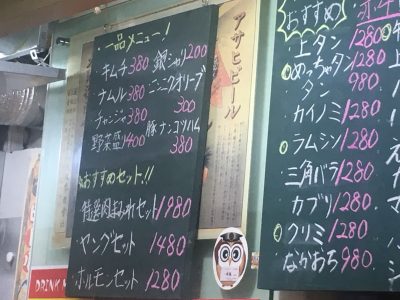 ・一品メニュー！
キムチ 380
銀シャリ 200
ナムル 380
ニンニクオリーブ
300
チャンジャ 380
豚ナンコツハム
380
野菜盛 1400
おすすめセット!!
特選肉まみれセット 1980
ヤングセット 1480
ホルモンセット 1280
アサヒビール
おすすめ
上タン 1280
めっちゃタン 1280
タン 980
カイノミ 1280
ラムシン 1280
三角バラ 1280
カブリ 1280
クリミ 1280
なかおち 980
DRINK